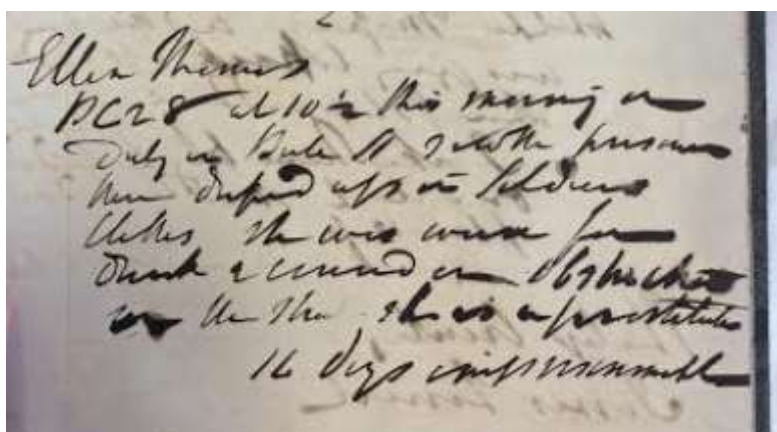 Ellen Thomas
PC 28 at 10½ this morning on
duty in Bute St I saw the prisoner
here dressed up in Soldiers
Clothes she was worse for
drink & caused an obstruction
in the she is a prostitute
14 days imprisonment